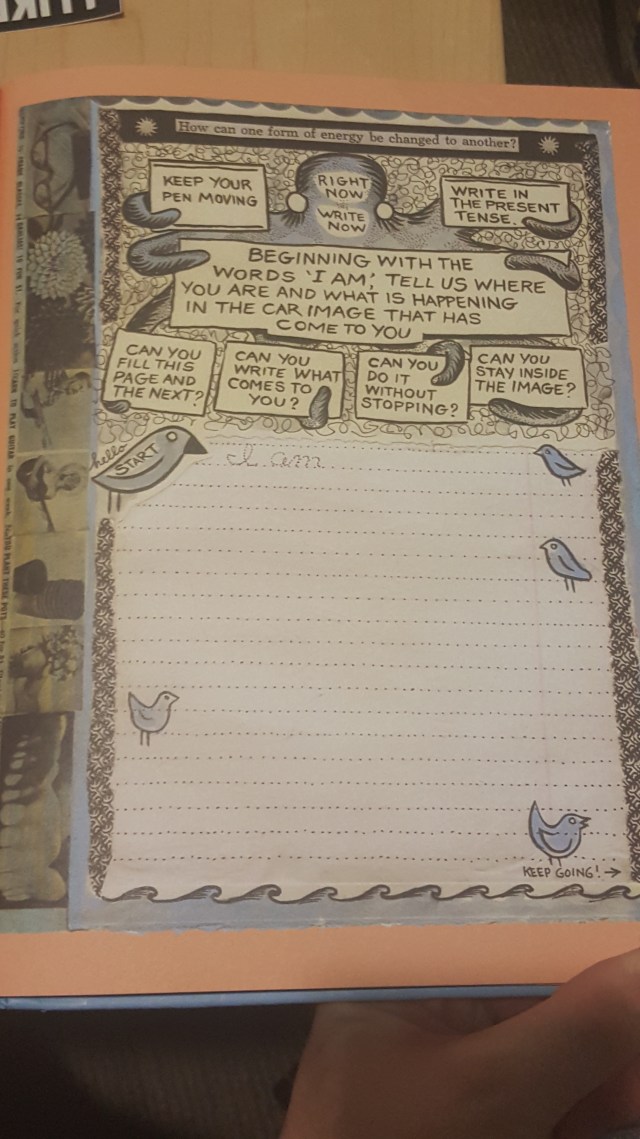 How can one form of energy be changed to another?
KEEP YOUR
PEN MOVING
RIGHT
NOW
WRITE
NOW
WRITE IN
THE PRESENT
TENSE.
BEGINNING WITH THE
WORDS 'I AM', TELL US WHERE
YOU ARE AND WHAT IS HAPPENING
IN THE CAR IMAGE THAT HAS
COME TO YOU
CAN YOU
FILL THIS
PAGE AND
THE NEXT?
CAN YOU
WRITE WHAT
COMES TO
YOU?
CAN YOU
DO IT
WITHOUT
STOPPING?
CAN YOU
STAY INSIDE
THE IMAGE?
hello
START
I am
KEEP GOING! →